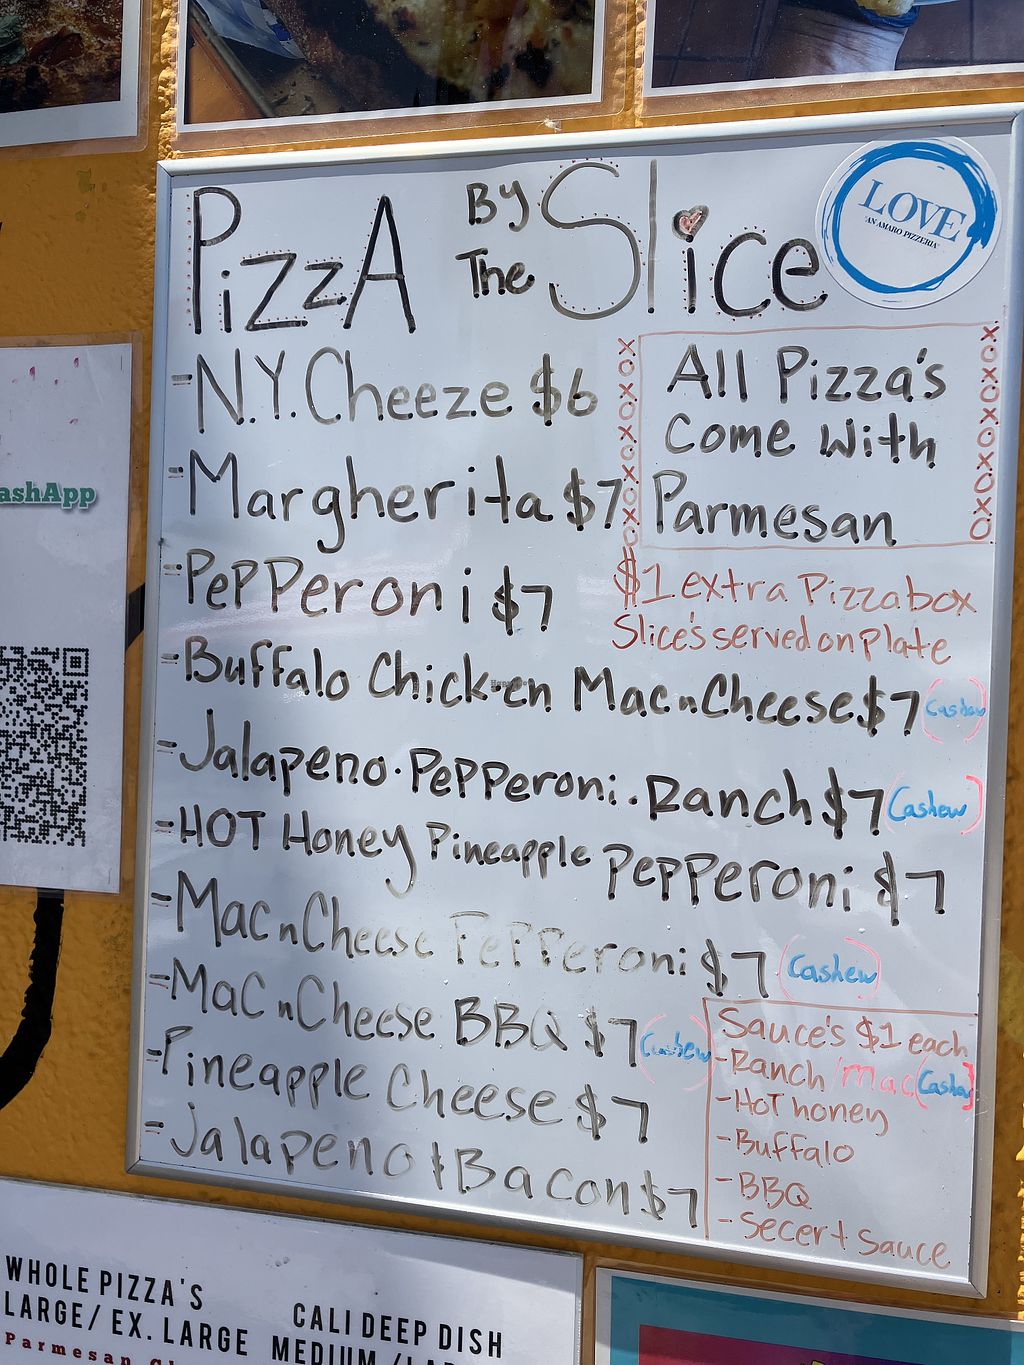 PizzA By The Slice
LOVE
"AN AMARO PIZZERIA"
-N.Y. Cheeze $6
-Margherita $7
-PePPeroni $7
-Buffalo Chicken Mac n Cheese $7 (Cashew)
-Jalapeno.PePPeroni.Ranch $7 (Cashew)
-HOT Honey Pineapple PePPeroni $7
-Mac n Cheese PePPeroni $7 (Cashew)
-Mac n Cheese BBQ $7 (Cashew)
-Pineapple Cheese $7
-Jalapeno & Bacon $7
xoxoxoxoxo
All Pizza's
Come With
Parmesan
xoxoxoxoxo
$1 extra Pizza box
Slice's served on Plate
Sauce's $1 each
-Ranch /mac (Cashew)
-HOT honey
-Buffalo
-BBQ
-Secert Sauce
ashApp
WHOLE PIZZA'S
LARGE/ EX. LARGE
Parmesan
CALI DEEP DISH
MEDIUM